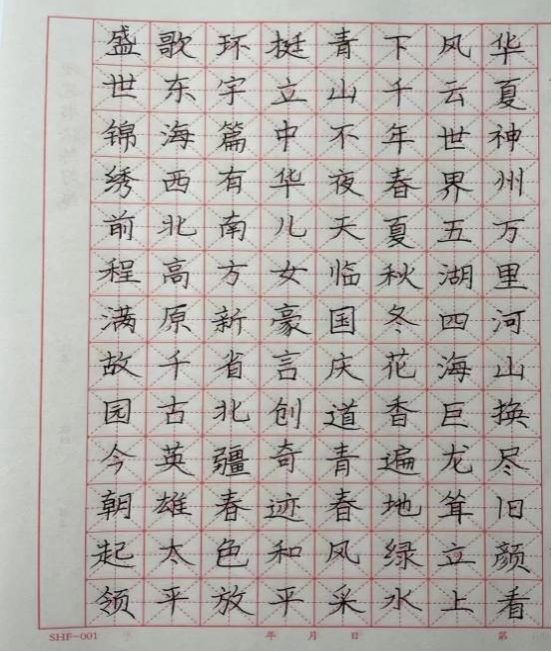 华夏神州万里河山换尽旧颜看
风云世界五湖四海巨龙耸立上
下千年春夏秋冬花香遍地绿水
青山不夜天临国庆道青春风采
挺立中华儿女豪言创奇迹和平
环宇篇有南方新省北疆春色放
歌东海西北高原千古英雄太平
盛世锦绣前程满故园今朝起领
SHF-001 年 月 日 第